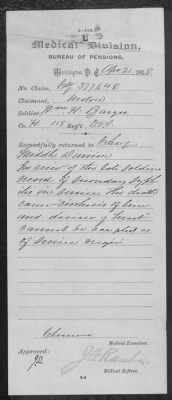 Medical Division,
BUREAU OF PENSIONS,
Washington, D. C., Apr 21, 1898.
No. Claim, 377648
Claimant, Widow
Soldier, Wm H.
Co. H 115 Reg't O.V.I.
Respectfully returned to Chief
Middle Division
In view of the late soldier's
record of secondary syph-
ilis in service the death
cause cirrhosis of liver
and disease of heart
cannot be accepted as
of service origin
Medical Examiner.
Approved:
Medical Referee.